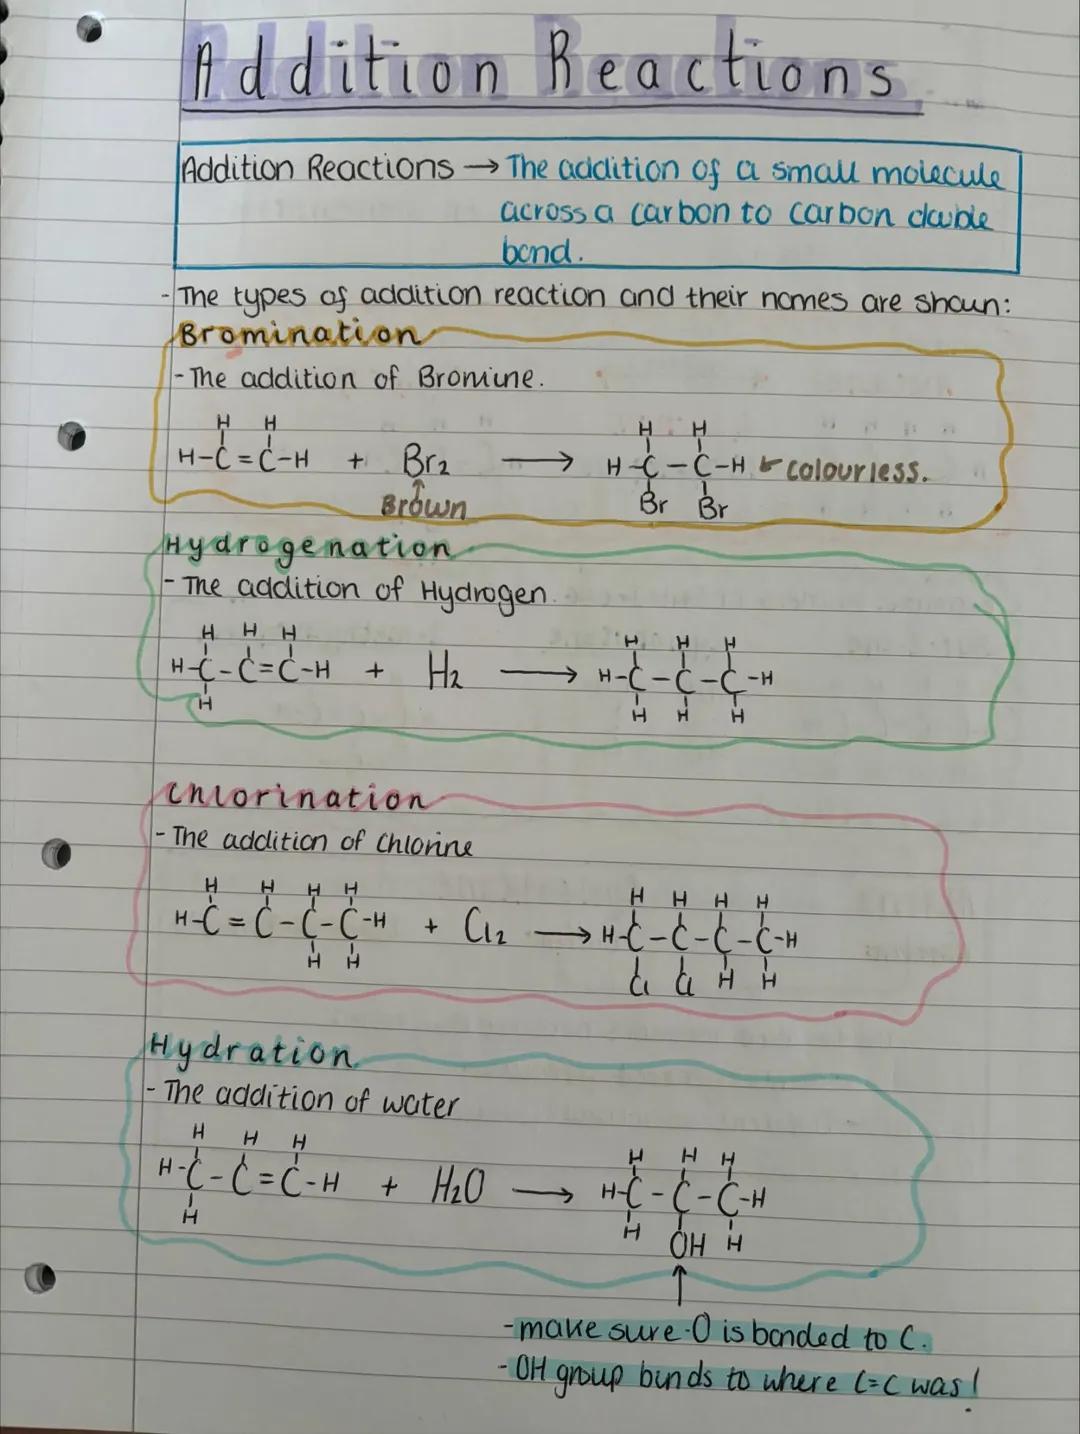 Addition Reactions
Addition Reactions → The addition of a small molecule
across a carbon to carbon double
bond.
- The types of addition reaction and their names are shown:
Bromination
- The addition of Bromine.
H H
H-C=C-H + Br2 → H-C-C-H ← colourless.
H H
Br Br
↑
Brown
Hydrogenation
- The addition of Hydrogen.
H H H
H-C-C=C-H + H2 → H-C-C-C-H
H
H H H
H H H
Chlorination
- The addition of Chlorine
H H H H
H-C=C-C-C-H + Cl2 → H-C-C-C-C-H
H H
H H H H
Cl Cl H H
Hydration
- The addition of water
H H H
H-C-C=C-H + H2O → H-C-C-C-H
H
H H H
H OH H
↑
- make sure -O is bonded to C.
- OH group binds to where C=C was!